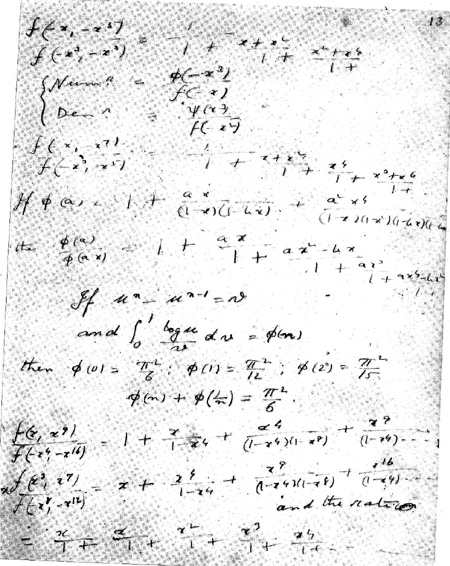 13
f(-x, -x⁵) / f(-x³, -x³) = 1/1 + x+x²/1 + x²+x⁴/1 +
{ Num^r = φ(-x³) / f(-x)
Den^r = ψ(x³) / f(-x²)
f(-x, -x⁷) / f(-x³, -x⁵) = 1/1 + x+x²/1 + x⁴/1 + x³+x⁶/1 +
If φ(a) = 1 + ax/(1-x)(1-bx) + a²x⁴/(1-x)(1-x²)(1-bx)(1-b
the φ(a)/φ(ax) = 1 + ax/1 + ax²-bx/1 + ax³/1 + ax⁴-bx²
If uⁿ - uⁿ⁻¹ = v
and ∫₀¹ log u / v dv = φ(n)
then φ(0) = π²/6 ; φ(1) = π²/12 ; φ(2) = π²/15
φ(n) + φ(1/n) = π²/6.
f(x, x⁹) / f(-x⁴, -x¹⁶) = 1 + x/1-x⁴ + x⁴/(1-x⁴)(1-x⁸) + x⁹/(1-x⁴)....
x f(x³, x⁷) / f(-x⁸, -x¹²) = x + x⁴/1-x⁴ + x⁹/(1-x⁴)(1-x⁸) + x¹⁶/(1-x⁴)....
and the ratio
= x/1 + x/1 + x²/1 + x³/1 + x⁴/1 + ....